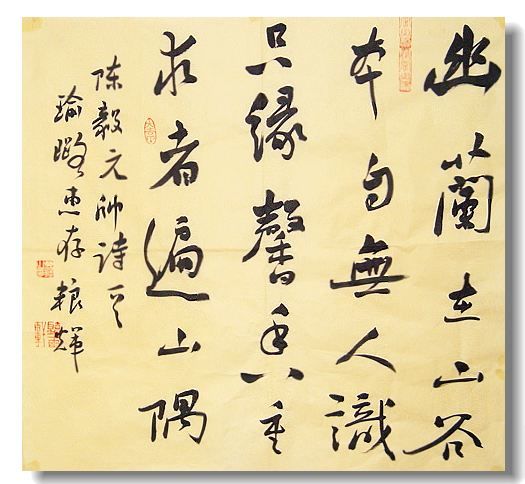 幽蘭在山谷
本自無人識
只緣馨香重
求者遍山隅
陈毅元帅诗一首
瑜 惠存 粮輝